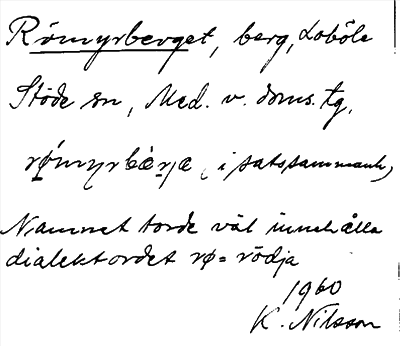 Römyrberget, berg, Loböle
Stöde sn, Med. v. doms. tg.
rǿmyrbæ̀rjæ, i satssammanh,
Namnet torde väl innehålla
dialektordet rø = rödja
1960
K. Nilsson